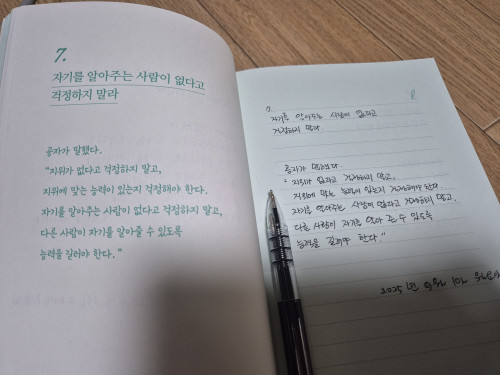 7.
자기를 알아주는 사람이 없다고
걱정하지 말라
공자가 말했다.
"지위가 없다고 걱정하지 말고,
지위에 맞는 능력이 있는지 걱정해야 한다.
자기를 알아주는 사람이 없다고 걱정하지 말고,
다른 사람이 자기를 알아줄 수 있도록
능력을 길러야 한다."
7.
자기를 알아주는 사람이 없다고
걱정하지 말라
공자가 말했다.
"지위가 없다고 걱정하지 말고,
지위에 맞는 능력이 있는지 걱정해야 한다.
자기를 알아주는 사람이 없다고 걱정하지 말고,
다른 사람이 자기를 알아 줄 수 있도록
능력을 길러야 한다."
2025년 9월 1일 월요일